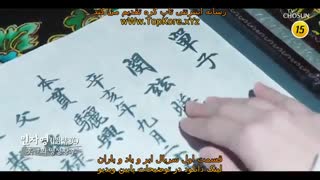 رسانه اینترنتی تاپ کره تقدیم میکند
WwW.TopKore.xYz
CHOSUN
15
單子
閔
辛亥年九月二
本貫 驪興
父
قسمت اول سریال ابر و باد و باران
لینک دانلود در توضیحات پایین ویدیو